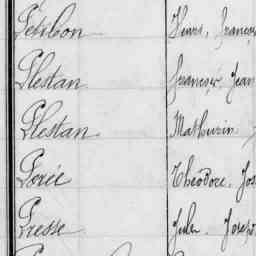 Petitbon Henri, François
Plestan François, Jean
Plestan Mathurin,
Porée Théodore, Jos
Presse Jules, Joseph